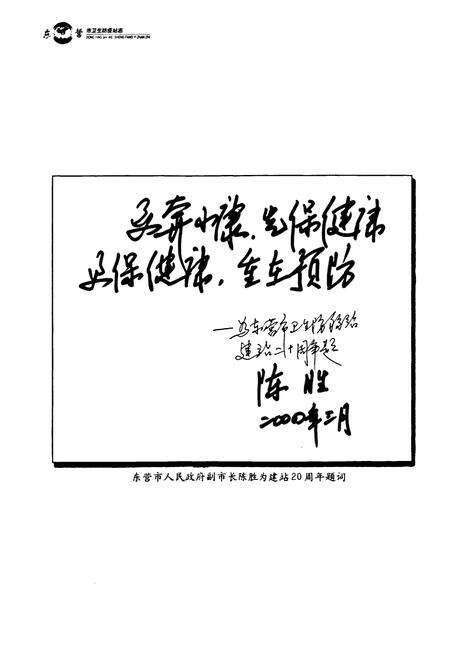 东营 市卫生防疫站志
DONG YING SHI WEI SHENG FANG YI ZHAN ZHI
要奔小康，先保健康
要保健康，重在预防
—为东营市卫生防疫站
建站二十周年题
陈胜
二〇〇〇年三月
东营市人民政府副市长陈胜为建站20周年题词